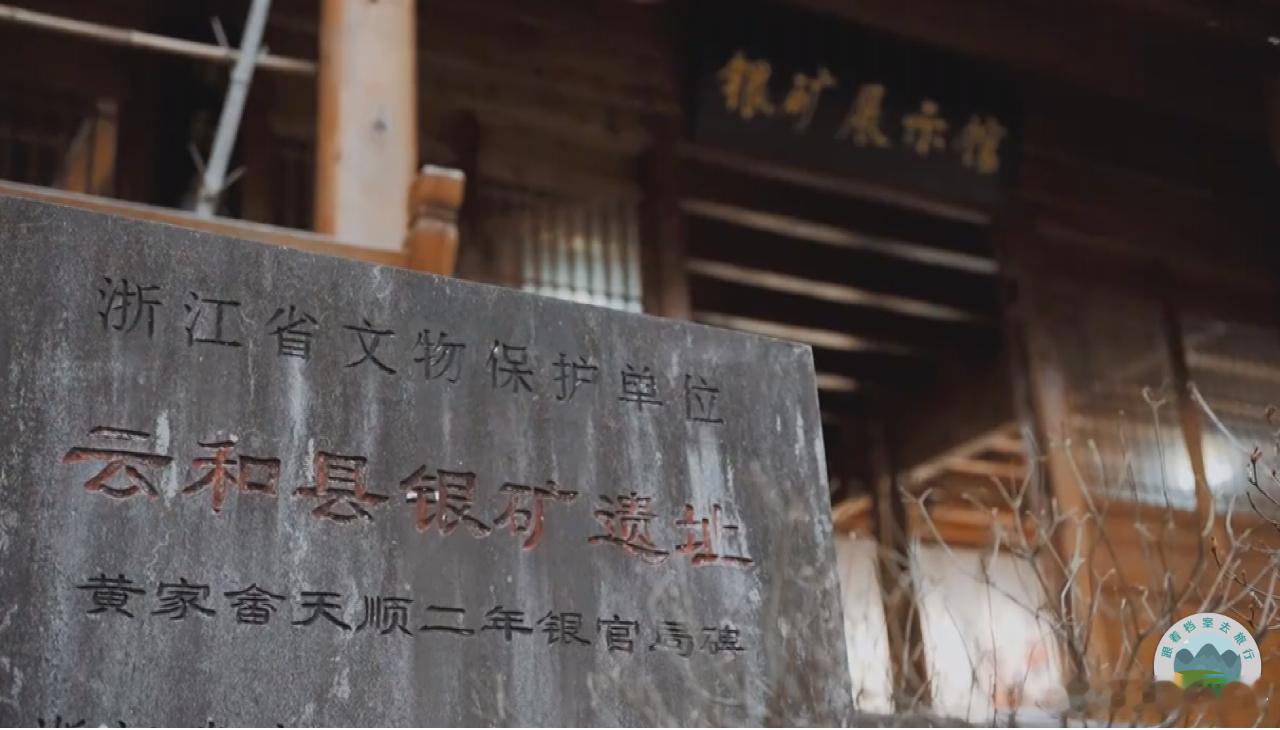 银矿展示馆
浙江省文物保护单位
云和县银矿遗址
黄家畲天顺二年银官局碑
跟着档案去旅行